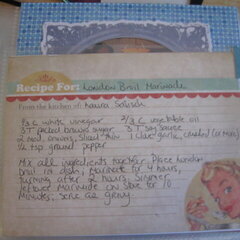 Recipe For: London Broil Marinade
From the kitchen of: Laura
1/3 c white vinegar 2/3 c vegetable oil
3 T packed brown sugar 3 T Soy Sauce
2 med. onions, sliced thin 1 clove garlic, crushed (or more)
1/2 tsp ground pepper
Mix all ingredients together. Place London
broil in dish, marinate for 4 hours,
turning after 2 hours. Simmer
leftover marinade on stove for 10
minutes, serve as gravy.